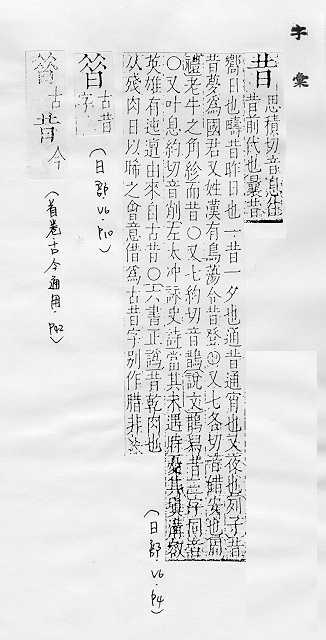 字彙
昔 思積切音息往
昔前代也曩昔
嚮日也疇昔昨日也一昔一夕也通昔通宵也又夜也列子昔
昔夢為國君又姓漢有烏蕩令昔登○又七各切音錯安也周
禮老牛之角紾而昔○又七約切音鵲說文
○又叶息約切音削左太冲詠史詩當其未遇時憂其填溝壑
英雄有迍邅由來自古昔○六書正譌昔乾肉也
从殘肉日以晞之會意借為古昔字別作腊非
(日部.V6.P4)
古昔
字
(日部.V6.P10)
古
昔 今
(首卷古今通用.P42)